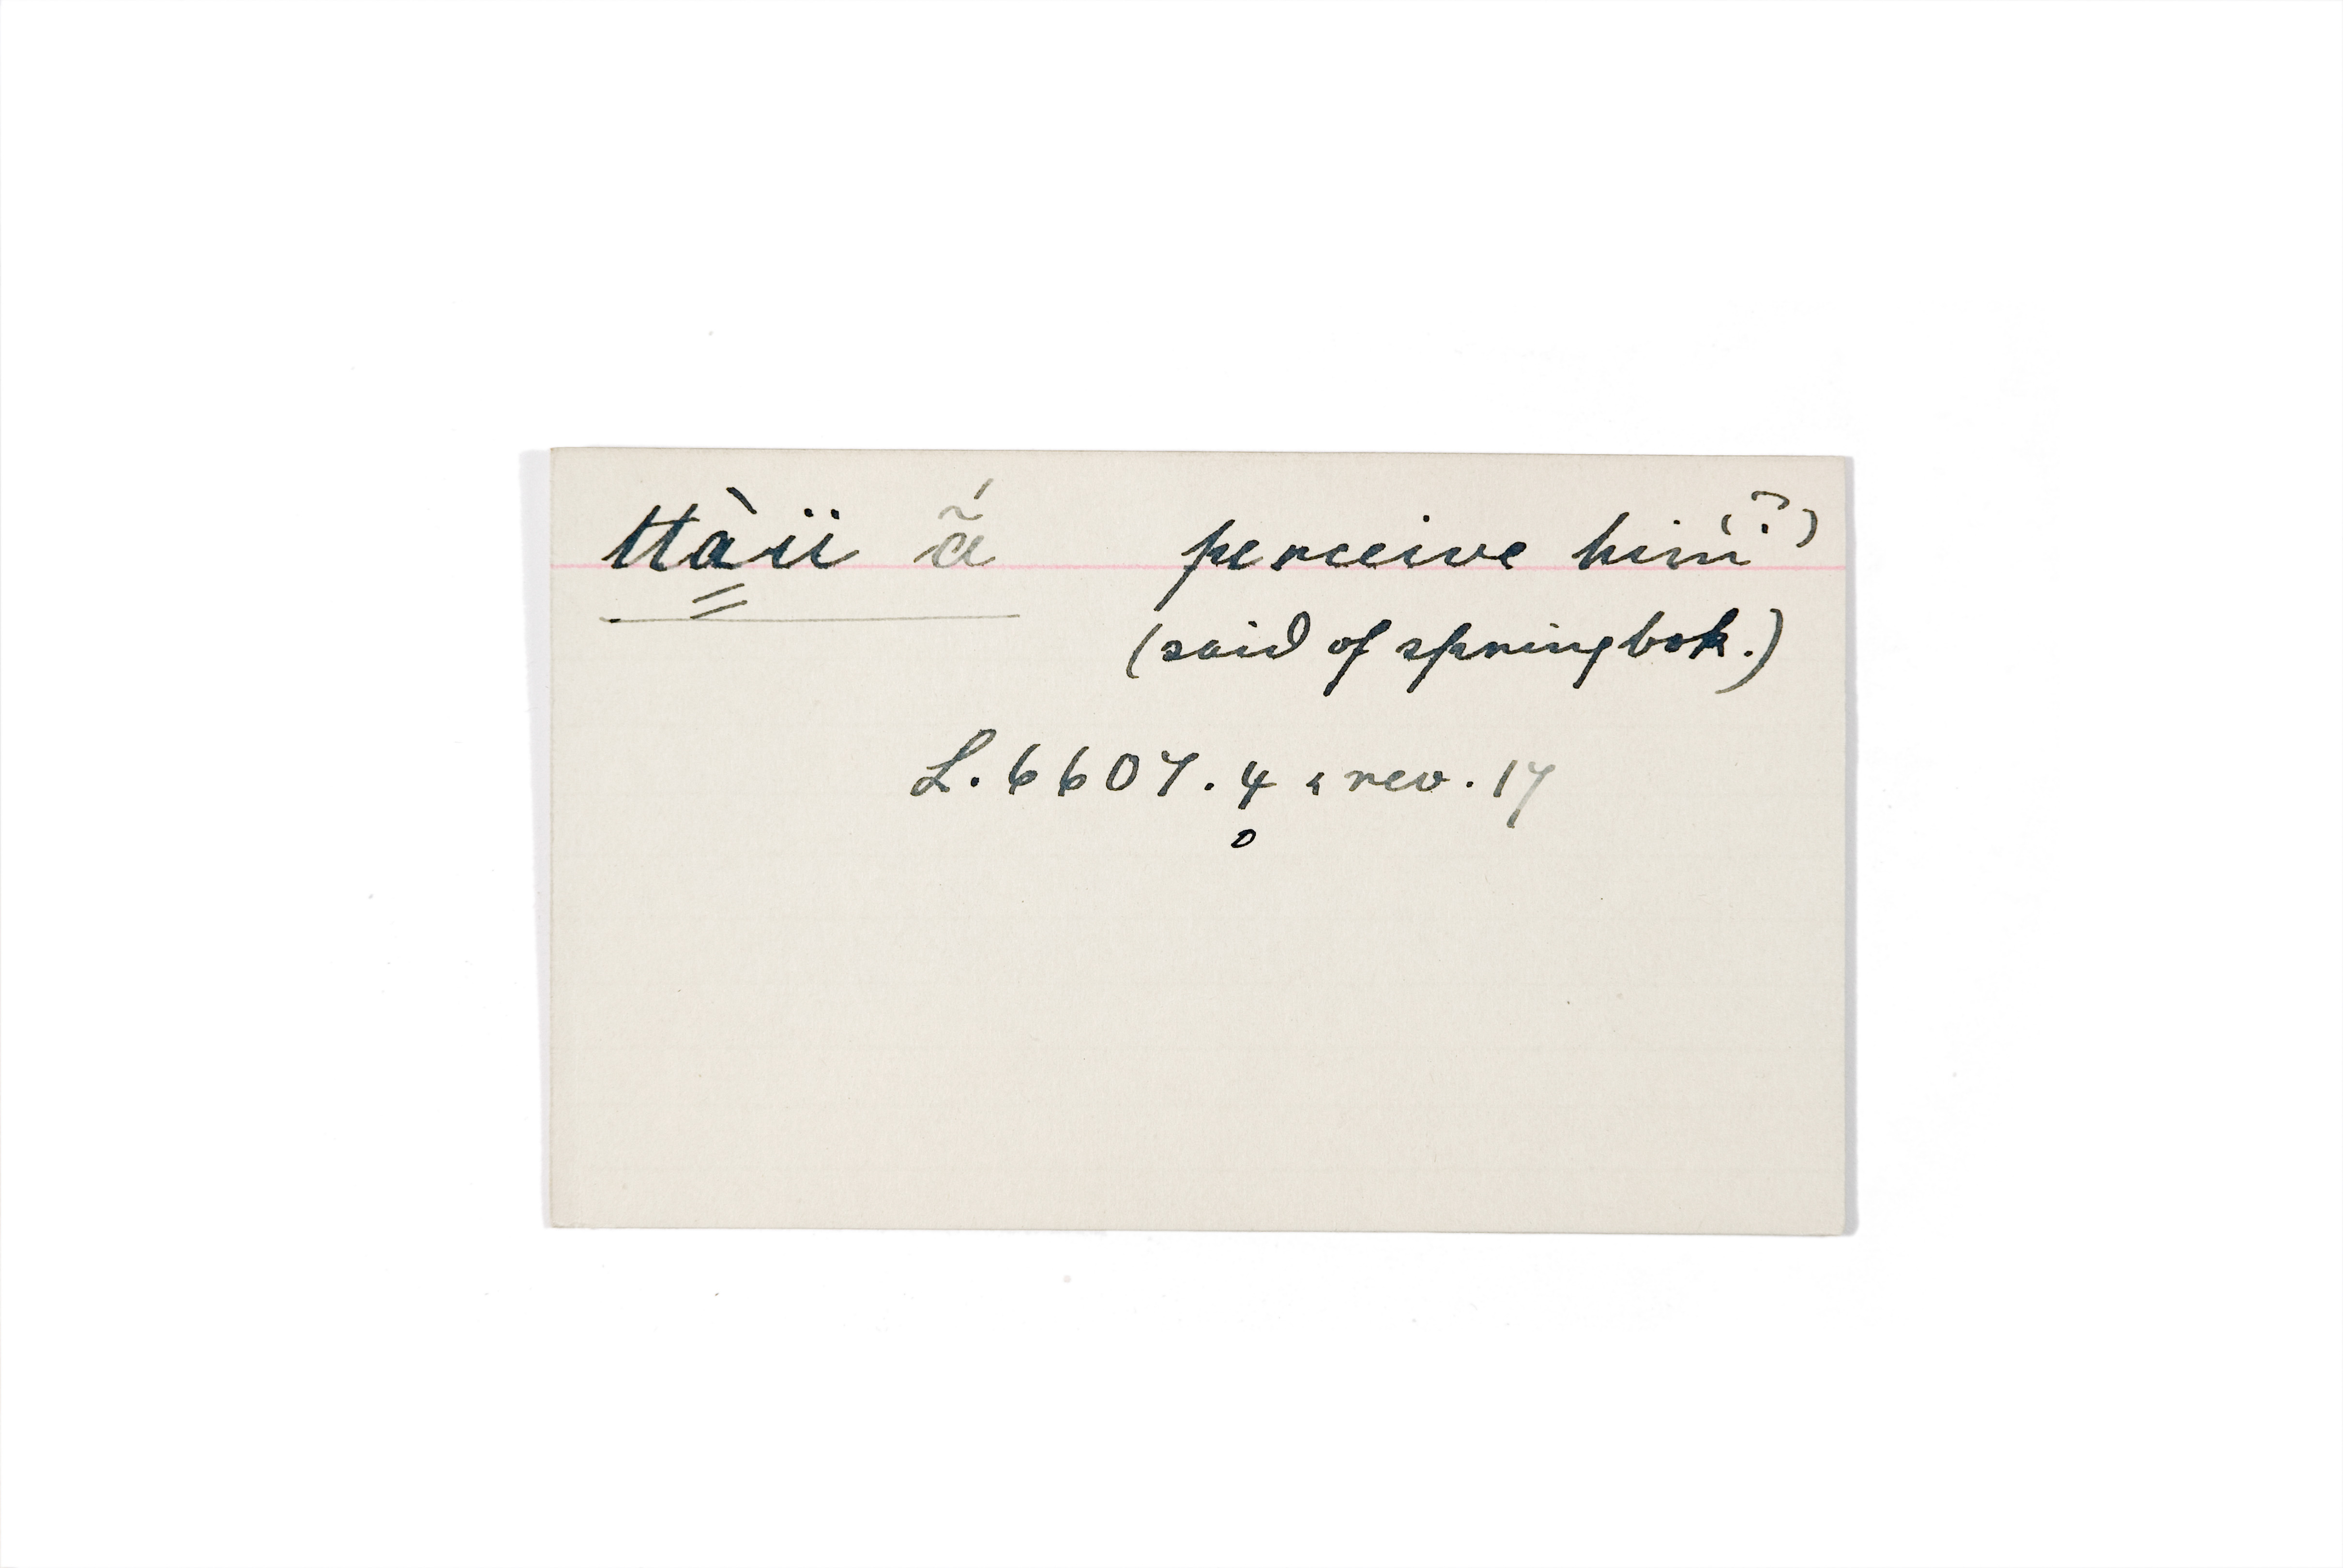 ttàïï ã́ perceive him (?)
(said of springbok.)
L. 6607. 4 & rev. 17
o